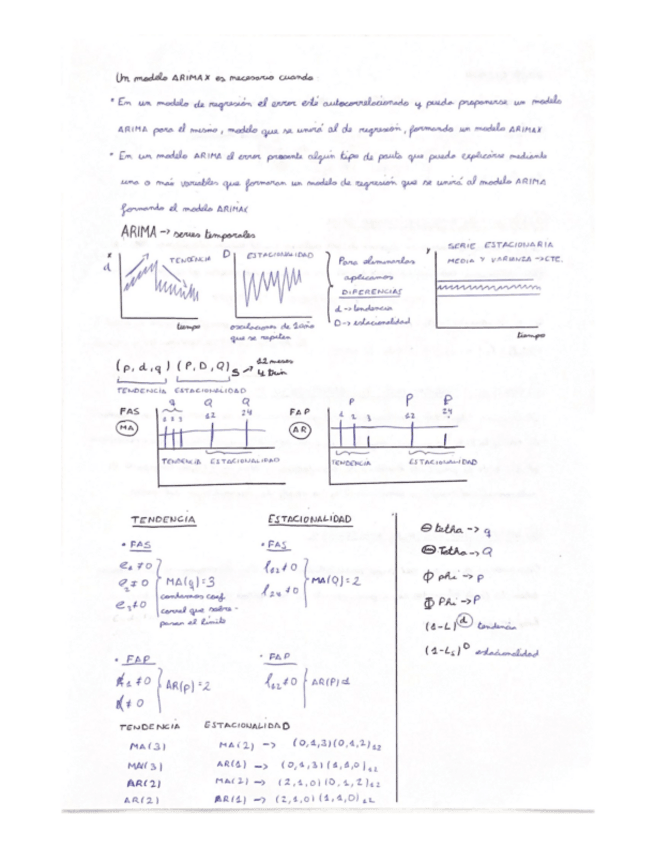 Un modelo ARIMAX es necesario cuando
* En un modelo de regresión el error esté autocorrelacionado y pueda proponerse un modelo
ARIMA para el mismo, modelo que se unirá al de regresión, formando un modelo ARIMAX
* En un modelo ARIMA el error presente algún tipo de pauta que pueda explicarse mediante
una o más variables que formaran un modelo de regresión que se unirá al modelo ARIMA
formando el modelo ARIMAX
ARIMA -> series temporales
d TENDENCIA
tiempo
D ESTACIONALIDAD
oscilaciones de
que se repiten
Para eliminarlas
aplicamos
DIFERENCIAS
d -> tendencia
D -> estacionalidad
Y SERIE ESTACIONARIA
MEDIA Y VARIANZA -> CTE.
tiempo
(p,d,q) (P,D,Q)s -> 12 meses
TENDENCIA ESTACIONALIDAD
FAS
MA
q Q Q
1 2 3 12 24
TENDENCIA ESTACIONALIDAD
FAP
AR
P P P
1 2 3 12 24
TENDENCIA ESTACIONALIDAD
TENDENCIA ESTACIONALIDAD
• FAS
ρ1 ≠ 0
ρ2 ≠ 0
ρ3 ≠ 0
MA(q)=3
contamos coef.
correl que sobre-
pasan el límite
• FAS
ρ12 ≠ 0
ρ24 ≠ 0
MA(Q)=2
• FAP
1 ≠ 0
≠ 0
AR(p)=2
• FAP
12 ≠ 0
AR(P)=1
TENDENCIA ESTACIONALIDAD
MA(3) MA(2) -> (0,1,3)(0,1,2)12
MA(3) AR(1) -> (0,1,3)(1,1,0)12
AR(2) MA(2) -> (2,1,0)(0,1,2)12
AR(2) AR(1) -> (2,1,0)(1,1,0)12
θ tetha -> q
Θ Tetha -> Q
ϕ phi -> p
Φ Phi -> P
(1-L)^d tendencia
(1-Ls)^D estacionalidad